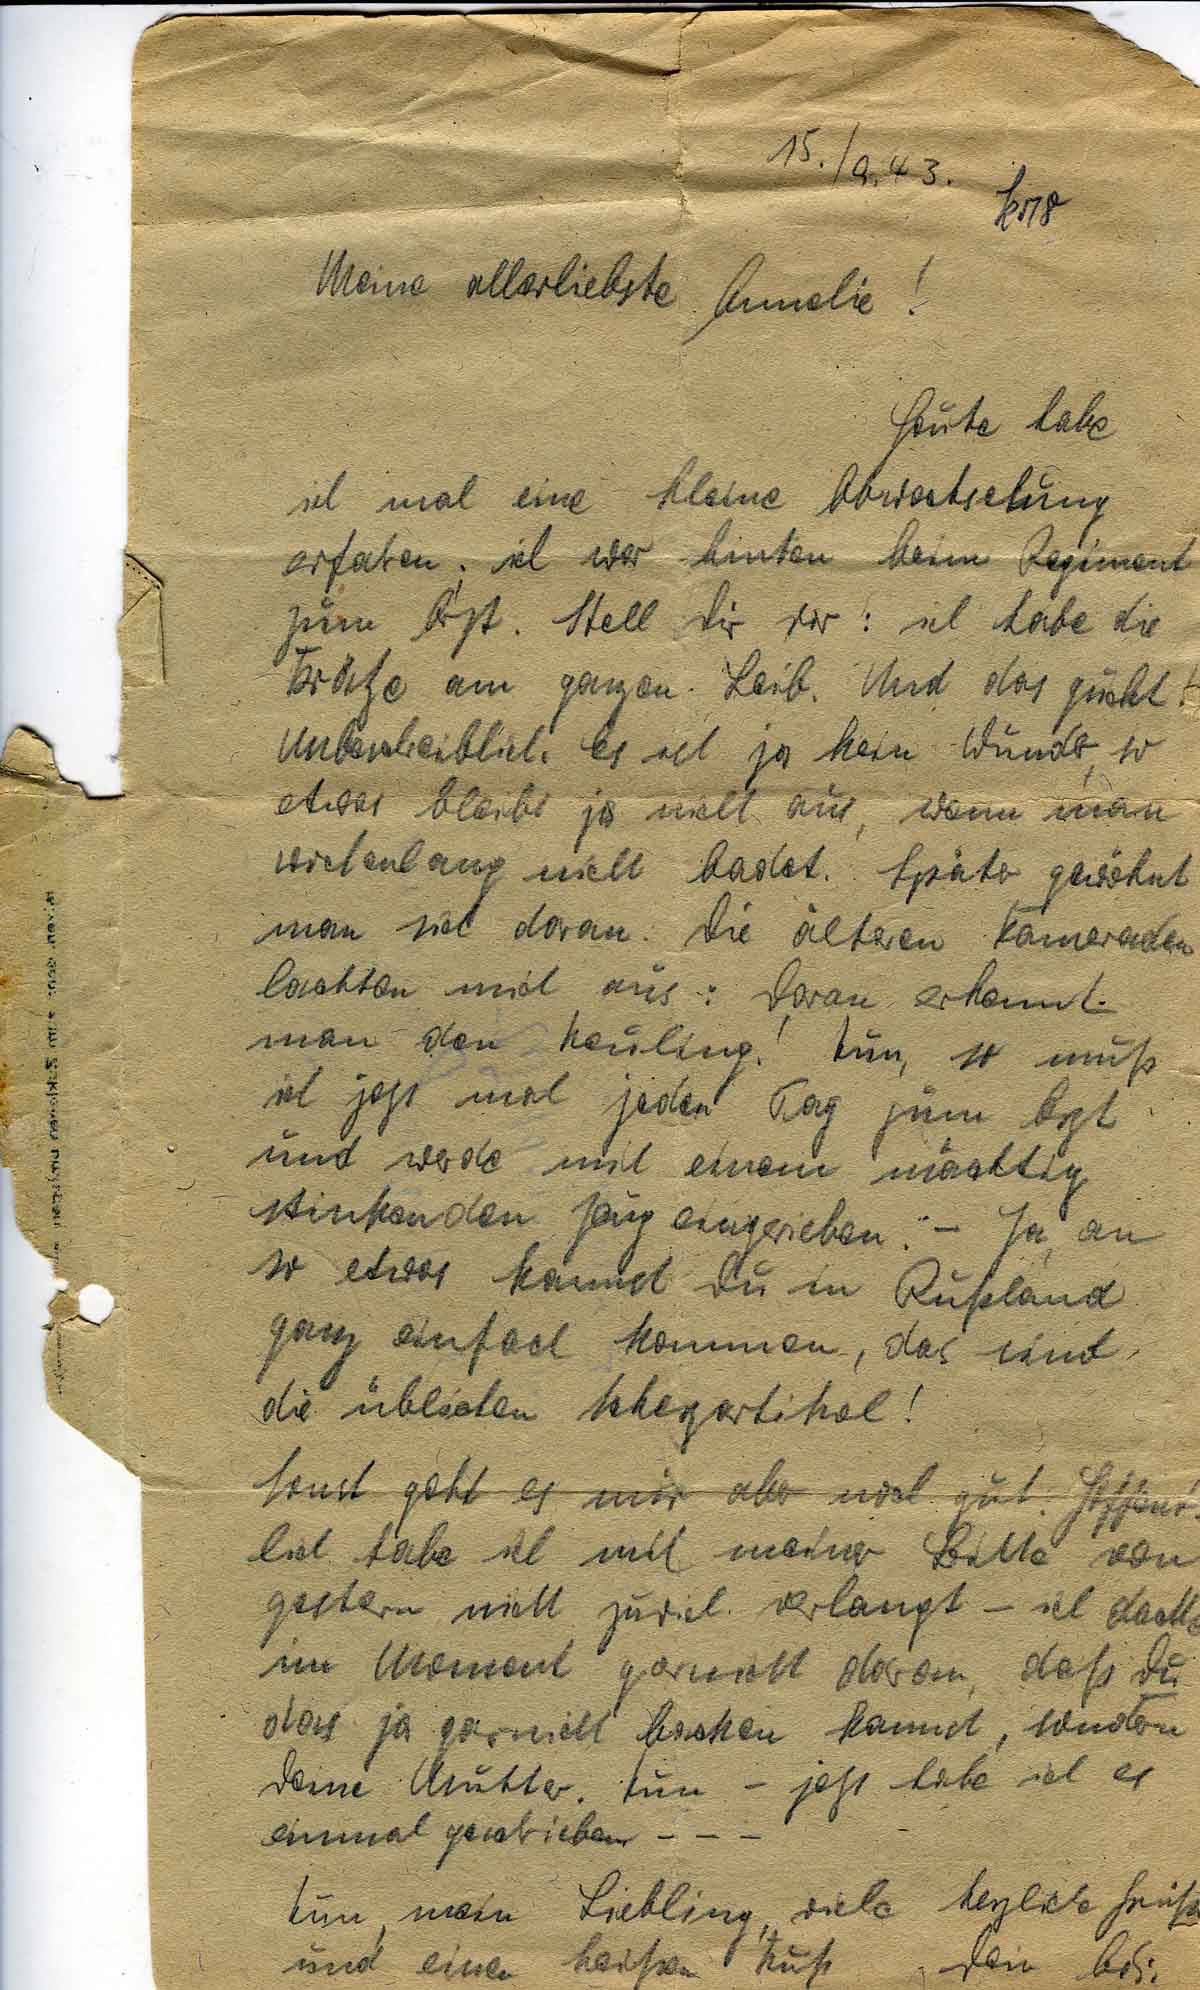 15./9.43.
kr18
Meine allerliebste Annelie!
Heute habe
ich mal eine kleine Abwechselung
erfahren, ich war hinten beim Regiment
zum Arzt. Stell Dir vor: ich habe die
Krätze am ganzen Leib. Und das juckt!
Unbeschreiblich. Es ist ja kein Wunder, so
etwas bleibt ja nicht aus, wenn man
wochenlang nicht badet. Später gewöhnt
man sich daran. Die älteren Kameraden
lachten mich aus: Daran erkennt
man den Neuling! Nun, so muß
ich jetzt mal jeden Tag zum Arzt
und werde mit einem mächtig
stinkenden Zeug eingerieben. – Ja, an
so etwas kannst Du in Rußland
ganz einfach kommen, das sind
die üblichen
Sonst geht es mir aber noch gut. Hoffent-
lich habe ich mit meiner Bitte von
gestern nicht zuviel verlangt – ich dachte
im Moment garnicht daran, daß Du
das ja garnicht backen kannst, sondern
Deine Mutter. Nun – jetzt habe ich es
einmal geschrieben – – –
Nun, mein Liebling, viele herzliche Grüße
und einen heißen Kuß Dein